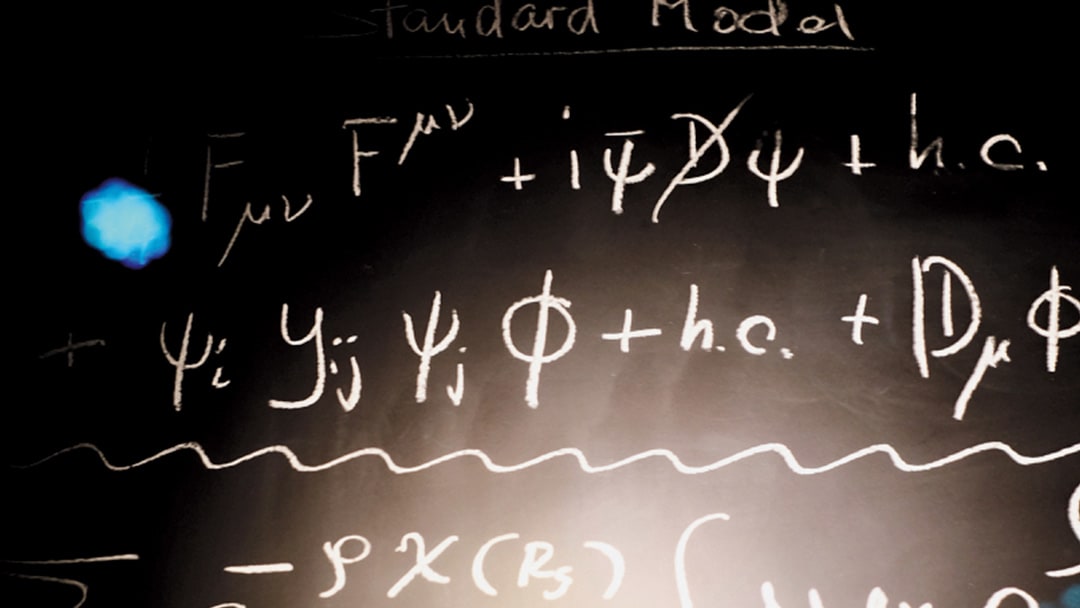 Standard Model
F_μν F^μν + i ψ̄ D̸ ψ + h.c.
+ ψ_i y_ij ψ_j ϕ + h.c. + |D_μ ϕ
- ρ χ (R_s) (